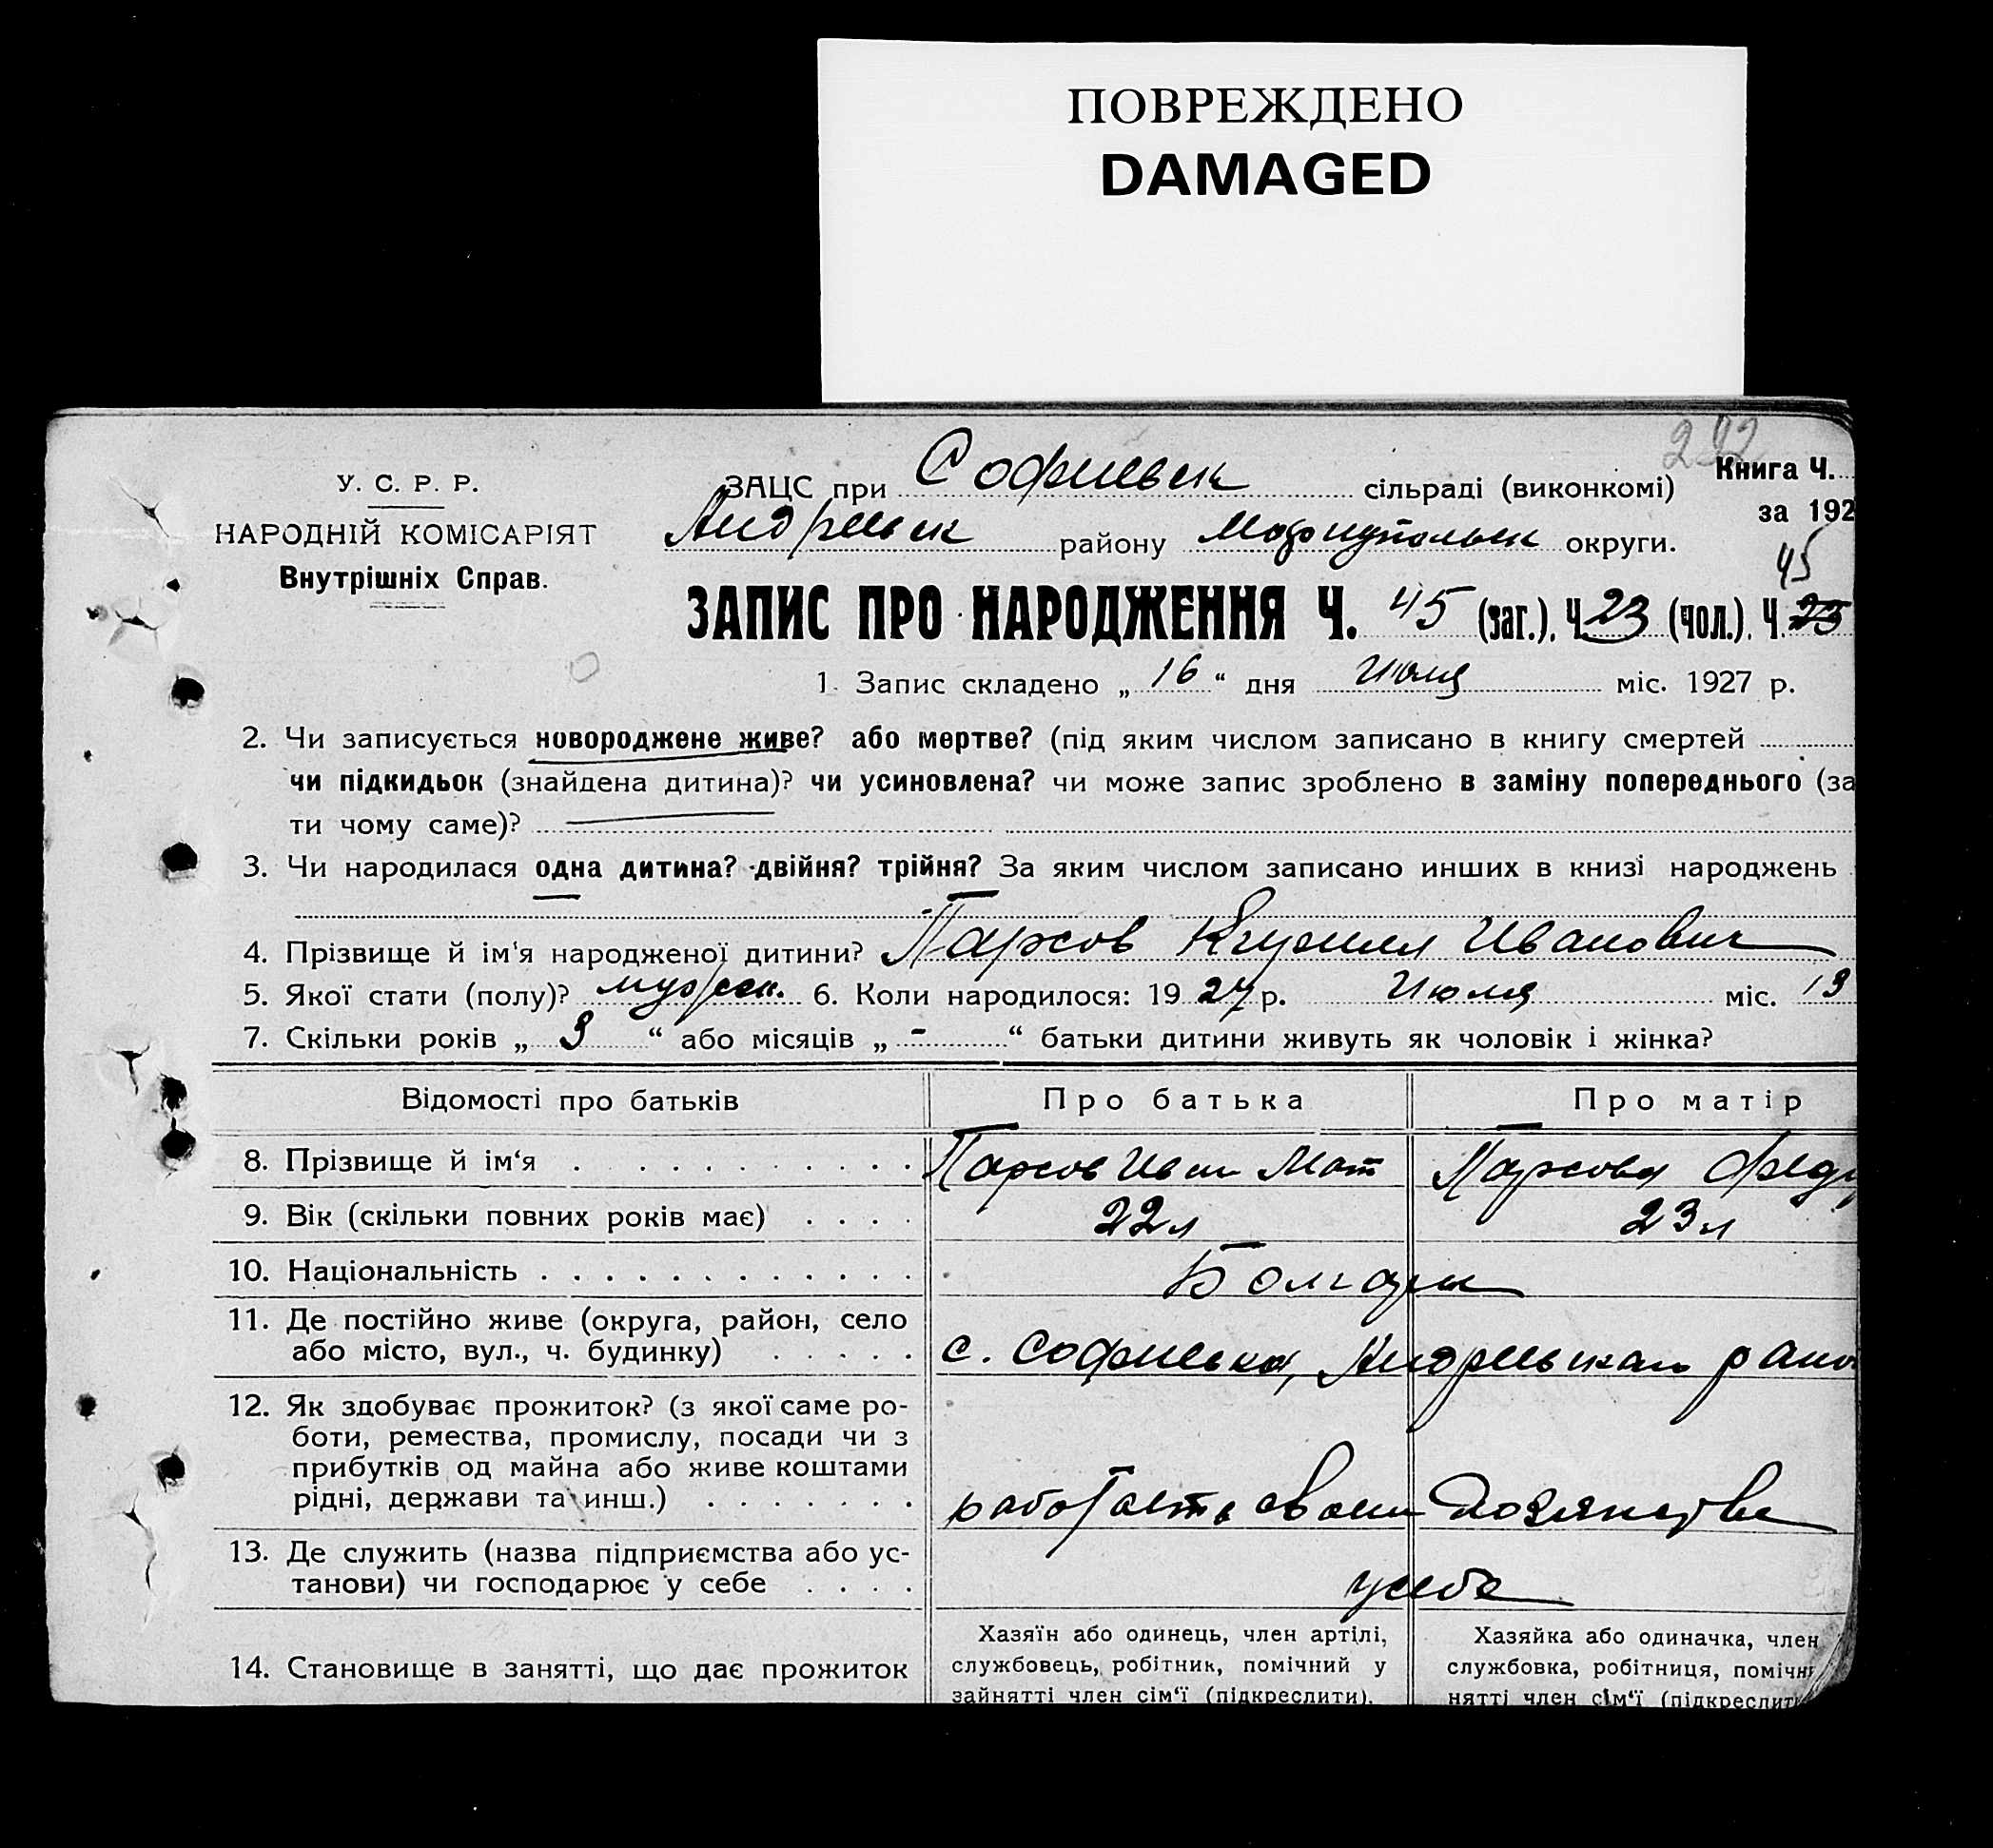 ПОВРЕЖДЕНО
DAMAGED
292
У. С. Р. Р.
НАРОДНІЙ КОМІСАРІЯТ
Внутрішніх Справ.
ЗАЦС при Софиевск сільраді (виконкомі)
Книга Ч.
за 192
Андреевск району Мариупольск округи.
45
ЗАПИС ПРО НАРОДЖЕННЯ Ч. 45 (заг.). Ч. 23 (чол.). Ч.
1. Запис складено „ 16 “ дня Июля міс. 1927 р.
2. Чи записується новороджене живе? або мертве? (під яким числом записано в книгу смертей
чи підкидьок (знайдена дитина)? чи усиновлена? чи може запис зроблено в заміну попереднього (за
ти чому саме)?
3. Чи народилася одна дитина? двійня? трійня? За яким числом записано инших в книзі народжень
4. Прізвище й ім‘я народженої дитини? Иванович
5. Якої стати (полу)? мужск. 6. Коли народилося: 19 27 р. Июля міс. 13
7. Скільки років „ 3 “ або місяців „ - “ батьки дитини живуть як чоловік і жінка?
Відомості про батьків
Про батька
Про матір
8. Прізвище й ім‘я Иван Мат
9. Вік (скільки повних років має) 22 л 23 л
10. Національність Болгары
11. Де постійно живе (округа, район, село
або місто, вул., ч. будинку) с. Софиевка, Андреевского
12. Як здобуває прожиток? (з якої саме ро-
боти, ремества, промислу, посади чи з
прибутків од майна або живе коштами
рідні, держави та инш.)
13. Де служить (назва підприємства або ус-
танови) чи господарює у себе у себе
14. Становище в занятті, що дає прожиток
Хазяїн або одинець, член артілі,
службовець, робітник, помічний у
зайнятті член сім‘ї (підкреслити).
Хазяйка або одиначка, член
службовка, робітниця, помічн
нятті член сім‘ї (підкреслити